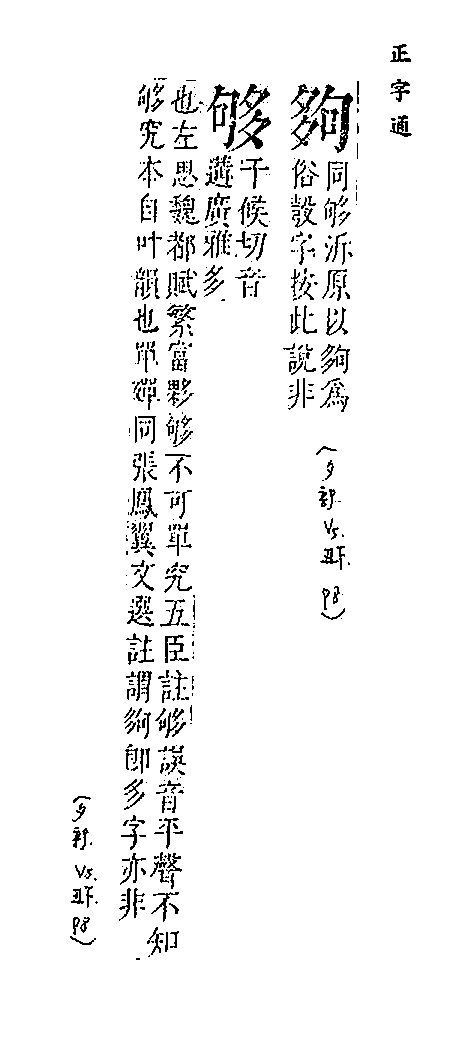 正字通
夠
同够泝原以夠爲
俗彀字按此說非
(夕部. Vs. 丑下. P8)
够
干候切音
遘廣雅多
也左思魏都賦繁富夥够不可單究五臣註够誤音平聲不知
够究本自叶韻也單殫同張鳳翼文選註謂夠卽多字亦非
(夕部. Vs. 丑下. P8)